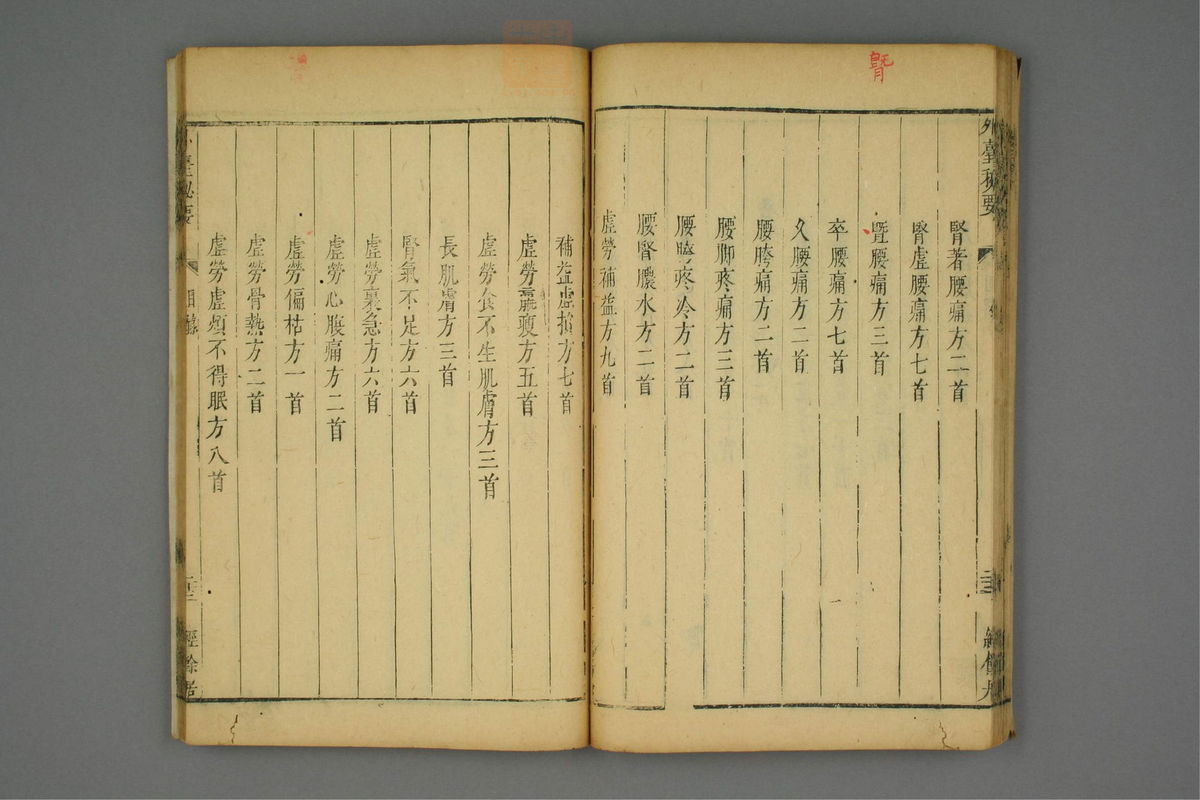 外臺秘要
腎著腰痛方二首
腎虛腰痛方七首
曁腰痛方三首
卒腰痛方七首
久腰痛方二首
腰胯痛方二首
腰脚疼痛方三首
腰胯疼冷方二首
腰腎膿水方二首
虛勞補益方九首
補益虛損方七首
虛勞羸瘦方五首
虛勞食不生肌膚方三首
長肌膚方三首
腎氣不足方六首
虛勞裏急方六首
虛勞心腹痛方二首
虛勞偏枯方一首
虛勞骨熱方二首
虛勞虛煩不得眠方八首
目錄
經餘居